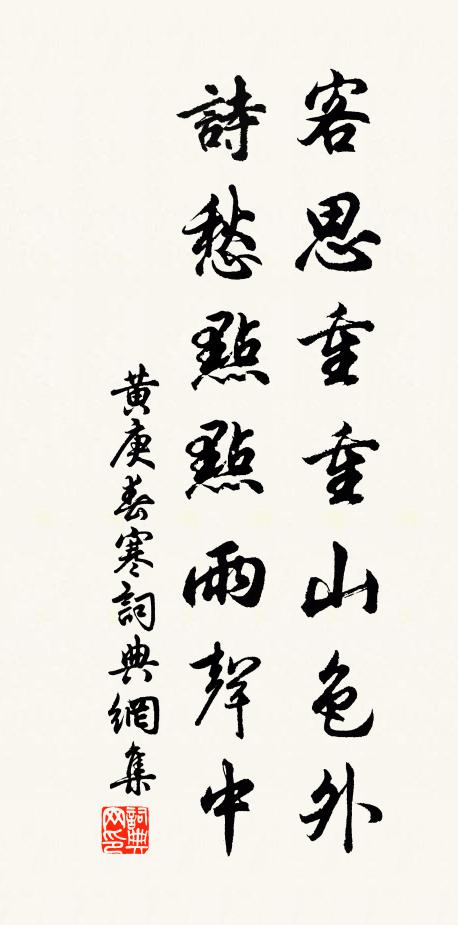 客思重重山色外
詩愁點點雨聲中
黃庚春寒詞典網集
詞典网印